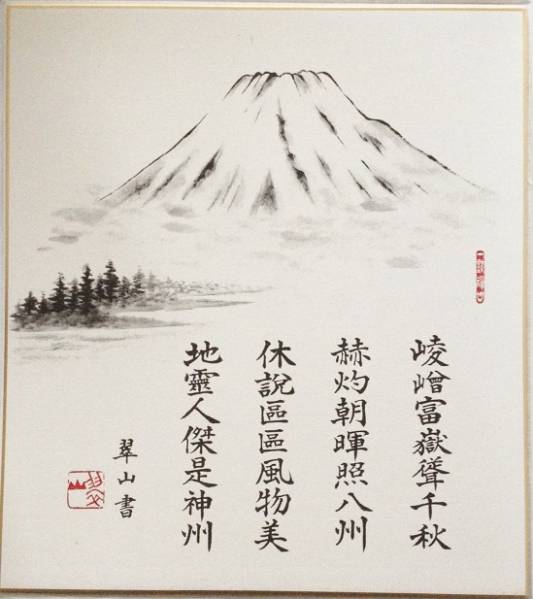 崚嶒富嶽聳千秋
赫灼朝暉照八州
休説區區風物美
地靈人傑是神州
翠山書